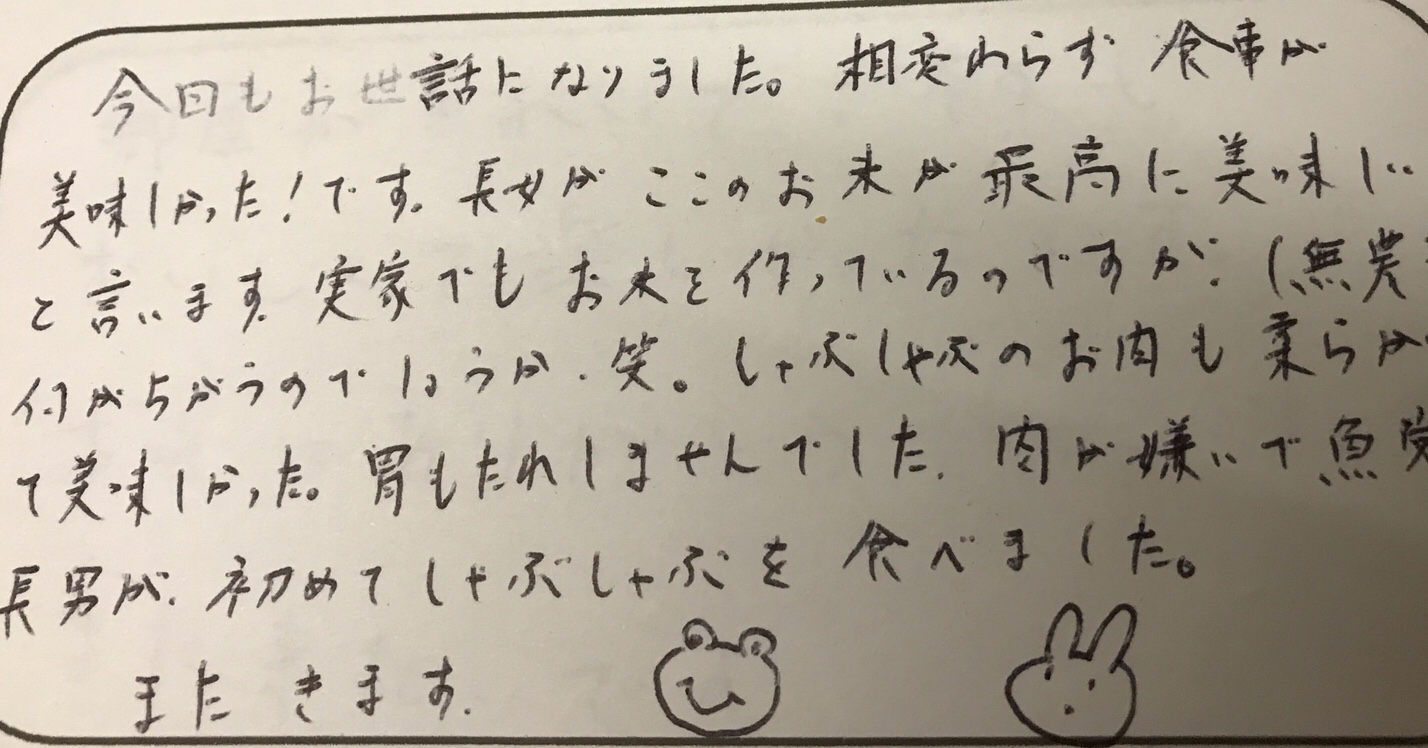 今回もお世話になりました。相変わらず 食事が
美味しかった!です。長女が ここのお米が最高に美味しい
と言います。実家でもお米を作っているのですが、(無農
何がちがうのでしょうか、笑。しゃぶしゃぶのお肉も柔らか
て美味しかった。胃もたれしませんでした。肉が嫌いで魚
長男が、初めてしゃぶしゃぶを食べました。
またきます。